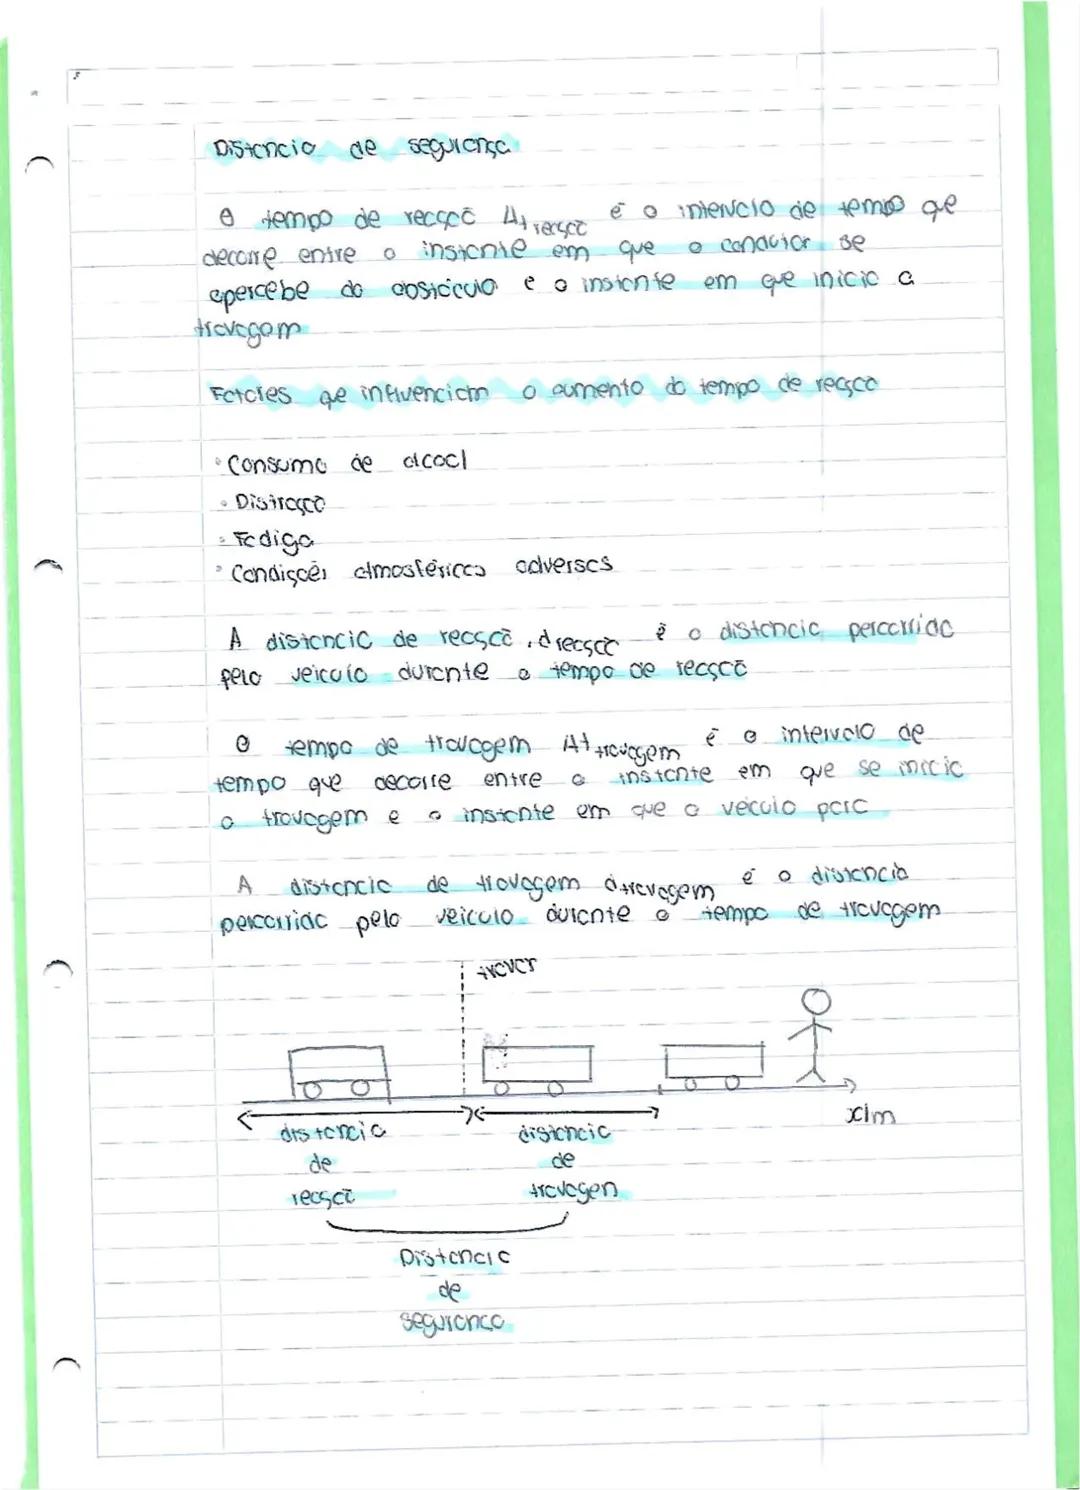 Distância de segurança
O tempo de reação Δt reação é o intervalo de tempo que
decorre entre o instante em que o condutor se
apercebe do obstáculo e o instante em que inicia a
travagem
Fatores que influenciam o aumento do tempo de reação
• Consumo de álcool
• Distração
• Fadiga
• Condições atmosféricas adversas
A distância de reação, d reação é a distância percorrida
pelo veículo durante o tempo de reação
O tempo de travagem Δt travagem é o intervalo de
tempo que decorre entre o instante em que se inicia
a travagem e o instante em que o veículo para
A distância de travagem d travagem é a distância
percorrida pelo veículo durante o tempo de travagem
travar
x/m
distância distância
de de
reação travagen
Distância
de
segurança